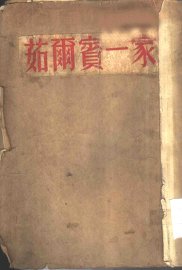 茹爾賓一家